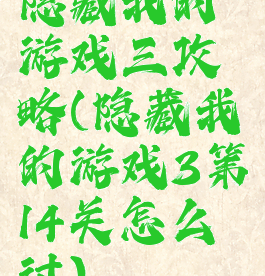 隐藏我的
游戏三攻
略(隐藏我
的游戏3第
14关怎么
过)